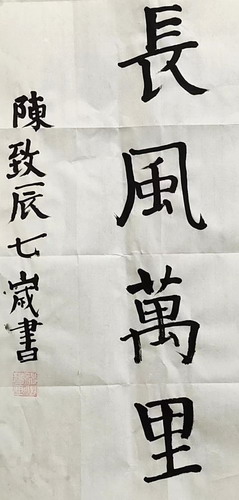 長風萬里
陳致辰七歲書